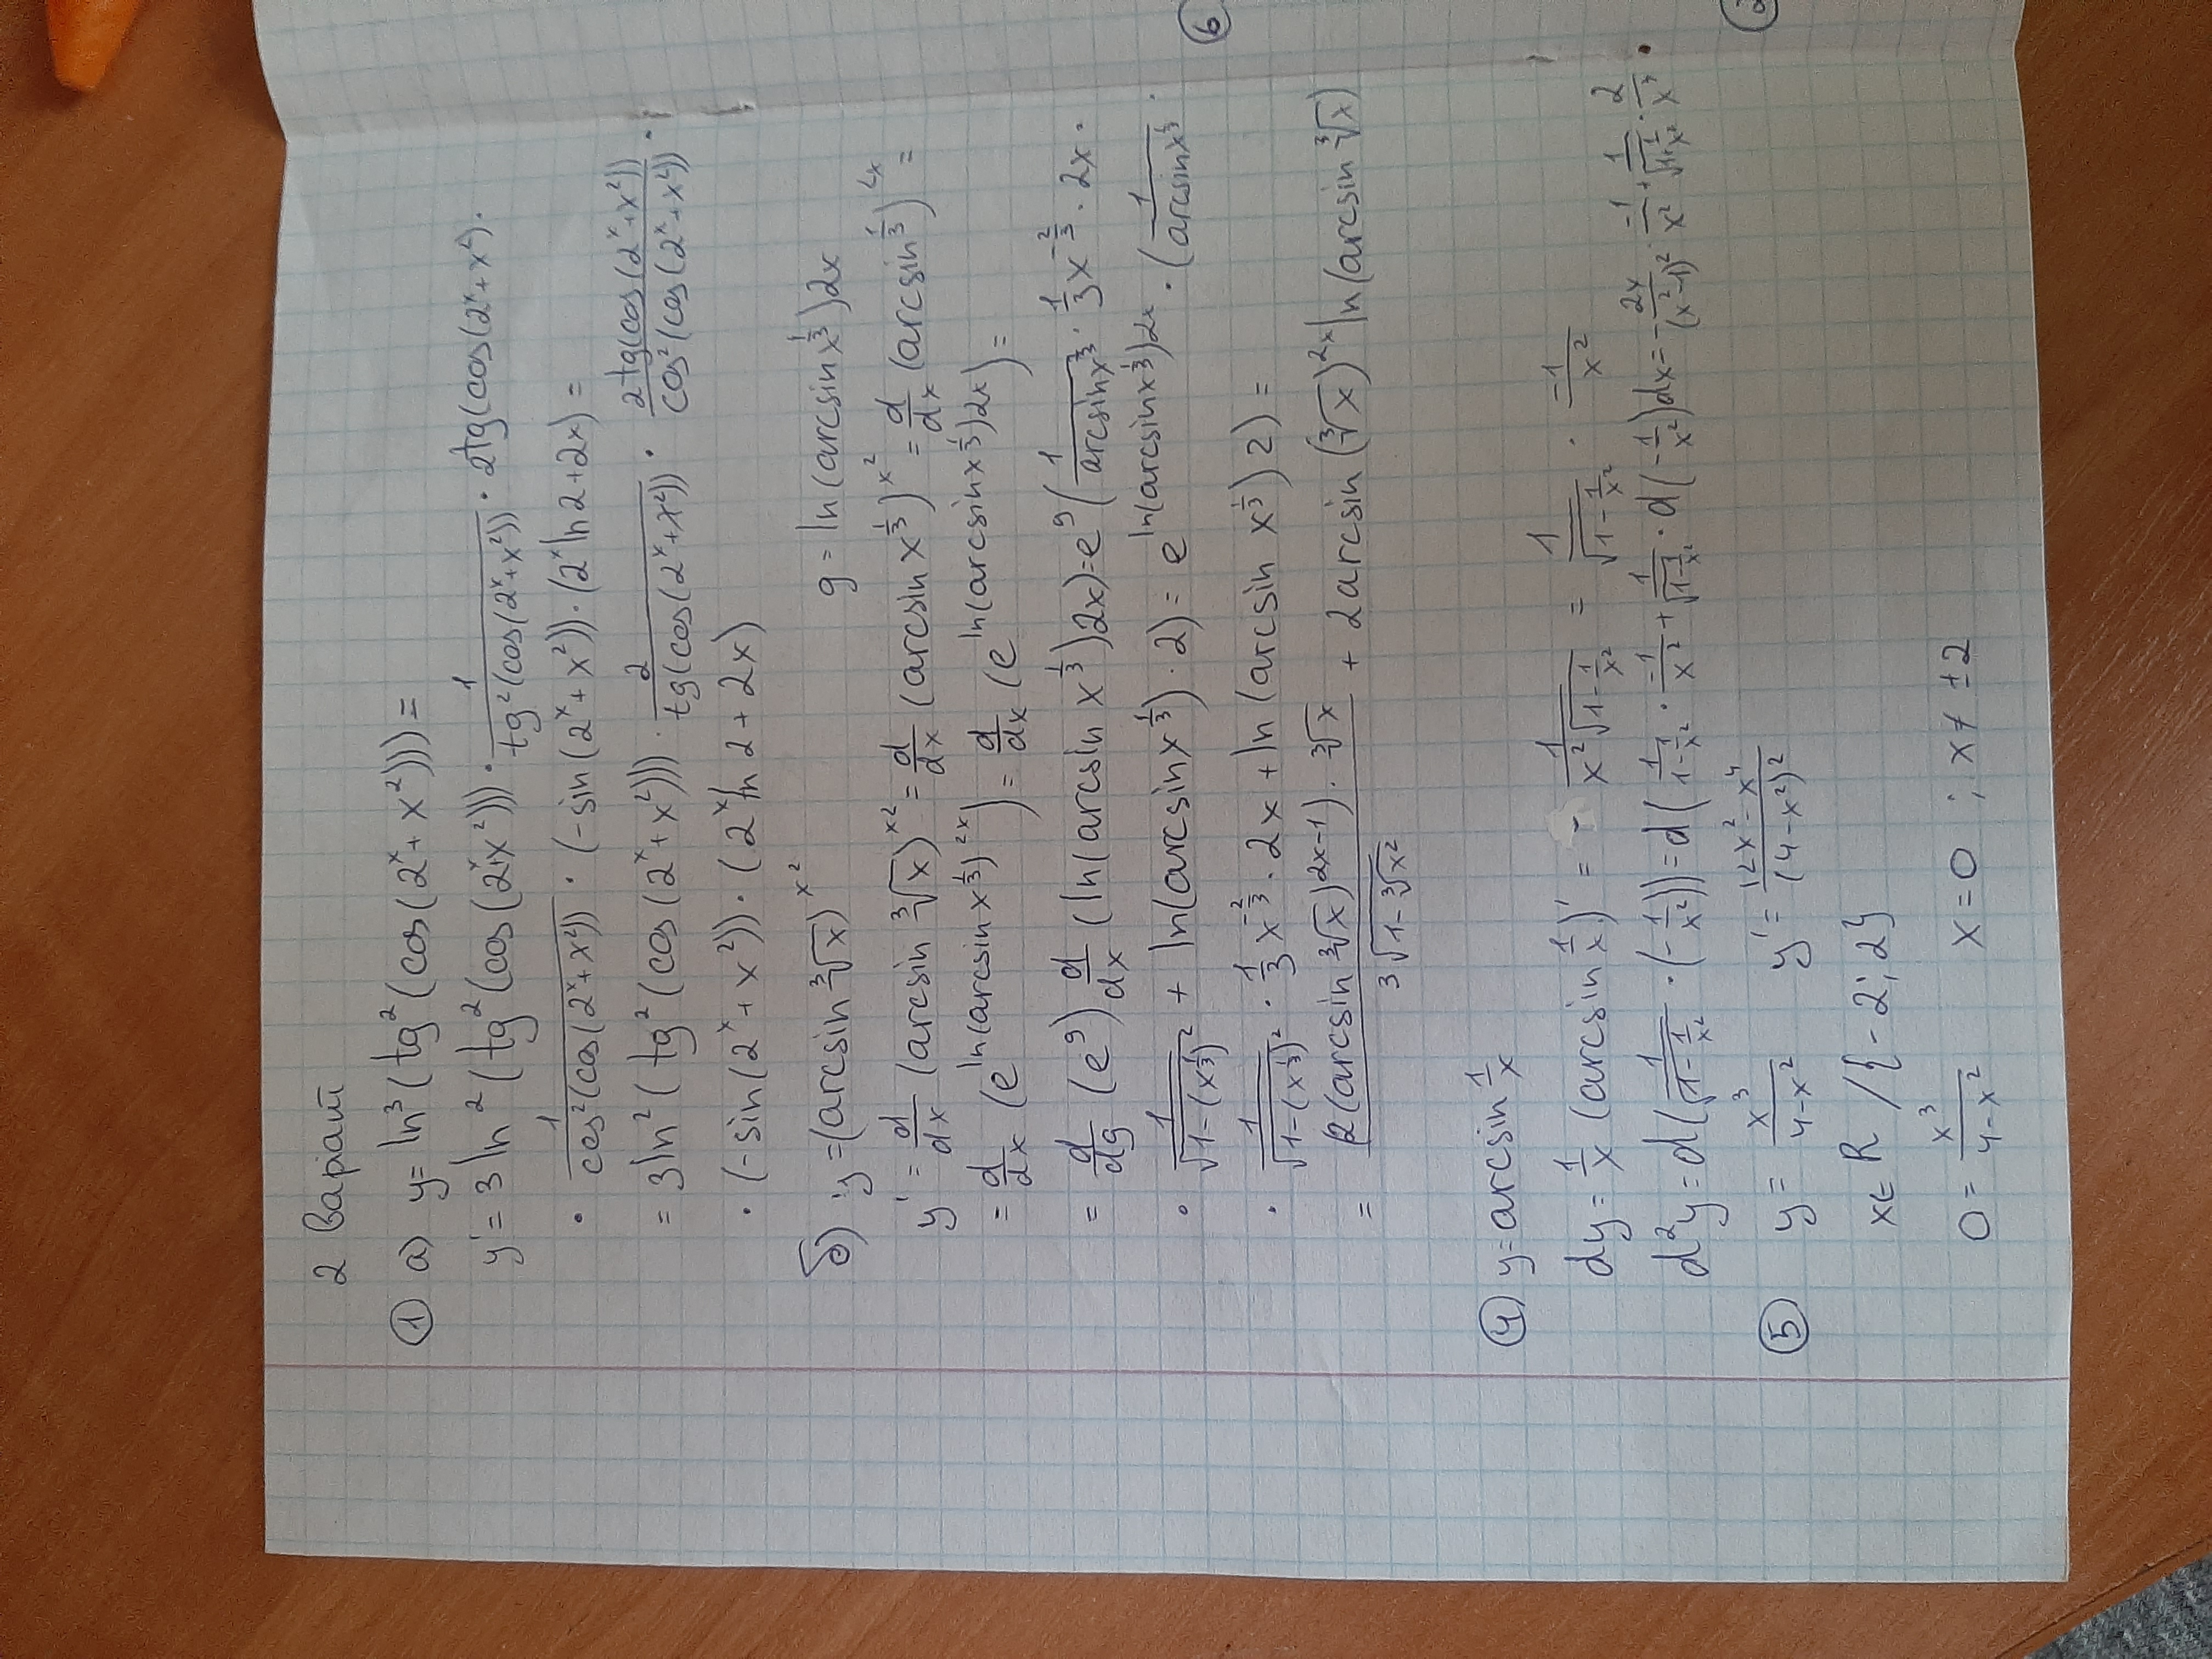 2 варіант
① а) y = ln³(tg²(cos(2ˣ + x²))) =
y' = 3 ln²(tg²(cos(2ˣ+x²))) · 1/(tg²(cos(2ˣ+x²))) · 2tg(cos(2ˣ+x²) ·
· 1/(cos²(cos(2ˣ+x²))) · (-sin(2ˣ+x²)) · (2ˣ ln 2 + 2x) =
= 3 ln²(tg²(cos(2ˣ+x²))) · 2/(tg(cos(2ˣ+x²))) · 2tg(cos(2ˣ+x²))/(cos²(cos(2ˣ+x²)) ·
· (-sin(2ˣ+x²)) · (2ˣ ln 2 + 2x)
б) y = (arcsin ∛x)^(x²) g = ln(arcsin x^(1/3))2x
y' = d/dx (arcsin ∛x)^(x²) = d/dx (arcsin x^(1/3))^(x²) = d/dx (arcsin^(1/3))^(2x) =
= d/dx (e^(ln(arcsin x^(1/3))^(2x))) = d/dx (e^(ln(arcsin x^(1/3))2x)) =
= d/dg (e^g) d/dx (ln(arcsin x^(1/3))2x) = e^g (1/(arcsin x^(1/3)) · 1/3 x^(-2/3) · 2x ·
· 1/√(1-(x^(1/3))²) + ln(arcsin x^(1/3)) · 2) = e^(ln(arcsin x^(1/3))2x) · (1/(arcsin x^(1/3)) ·
· 1/√(1-(x^(1/3))²) · 1/3 x^(-2/3) · 2x + ln(arcsin x^(1/3)) 2) =
= (2(arcsin ∛x)^(2x-1)) · ∛x / (3√(1-∛x²)) + 2 arcsin(∛x)^(2x) ln(arcsin ∛x)
6
④ y = arcsin 1/x
dy = 1/x (arcsin 1/x)' = - 1/(x²√(1-1/x²)) = 1/√(1-1/x²) · -1/x²
d²y = d(1/√(1-1/x²) · (-1/x²)) = d(1/(1-1/x²) · -1/x² + 1/√(1-1/x²) · d(-1/x²)dx = -2x/(x²-1)² · -1/x² + 1/√(1+1/x²) · 2/x³ ·
⑤ y = x³/(4-x²) y' = (12x²-x⁴)/(4-x²)²
x∈ R /{-2; 2}
0 = x³/(4-x²) x = 0 ; x ≠ ±2